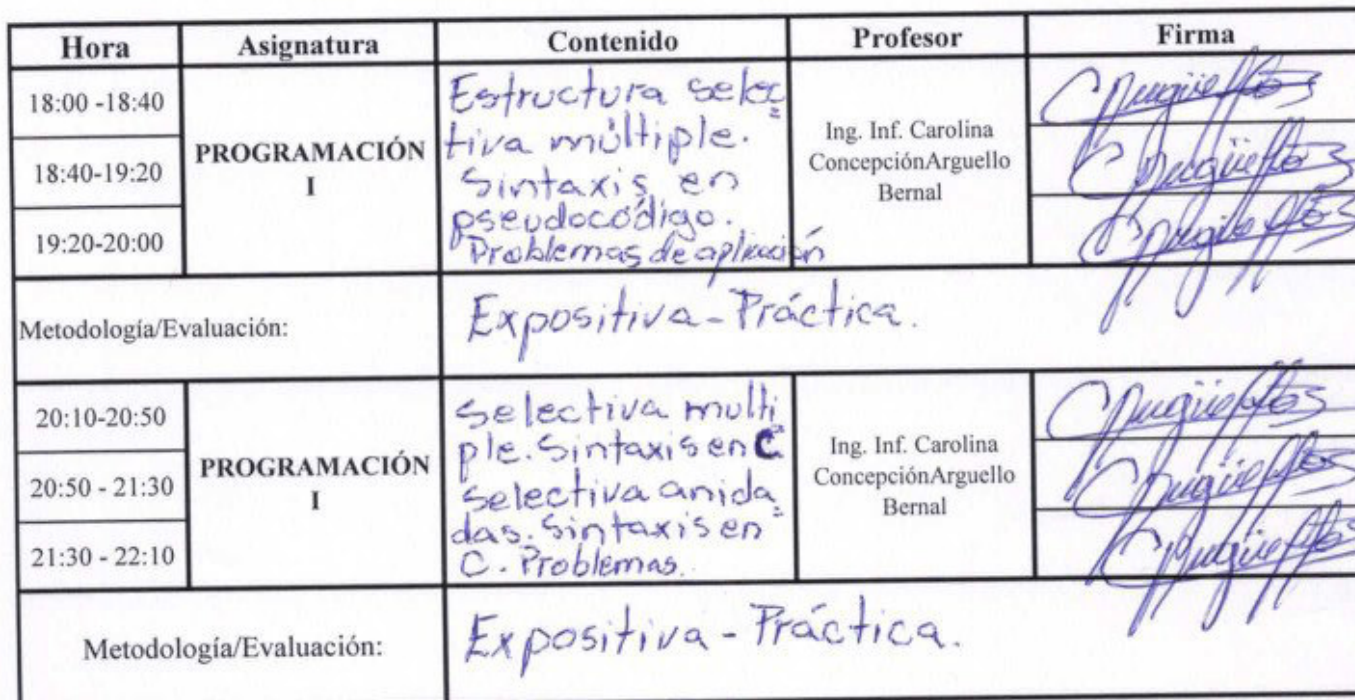 Hora Asignatura Contenido Profesor Firma
18:00 -18:40
18:40-19:20
19:20-20:00
PROGRAMACIÓN
I
Estructura selec
tiva múltiple.
Sintaxis en
pseudocódigo.
Problemas de aplicación
Ing. Inf. Carolina
ConcepciónArguello
Bernal
Metodología/Evaluación:
Expositiva-Práctica.
20:10-20:50
20:50 - 21:30
21:30 - 22:10
PROGRAMACIÓN
I
Selectiva multi
ple. Sintaxis en C
Selectiva anida
das. Sintaxis en
C. Problemas.
Ing. Inf. Carolina
ConcepciónArguello
Bernal
Metodología/Evaluación:
Expositiva-Práctica.